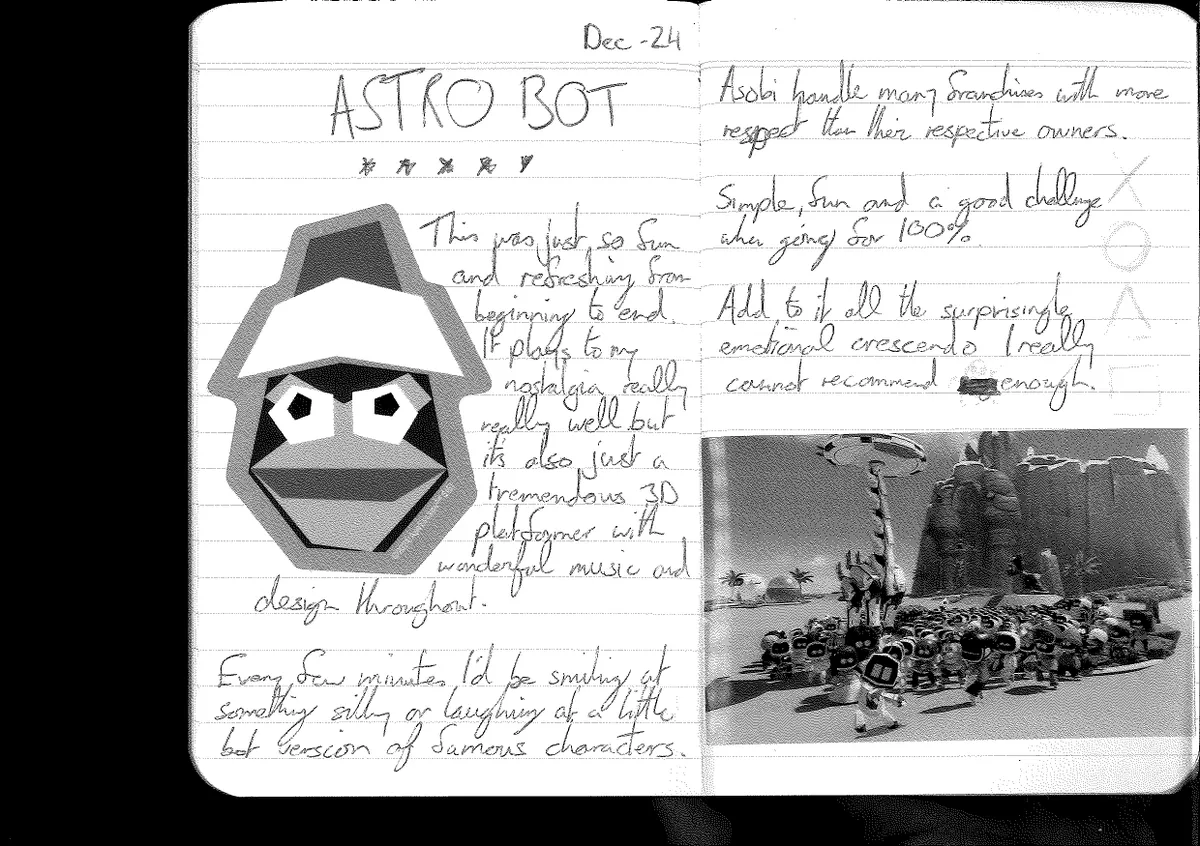 Dec -24
ASTRO BOT
This was just so fun
and refreshing from
beginning to end.
It plays to my
nostalgia really
really well but
it's also just a
tremendous 3D
platformer with
wonderful music and
design throughout.
Every few minutes I'd be smiling at
something silly or laughing at a little
bot version of famous characters.
Asobi handle many franchises with more
respect than their respective owners.
Simple, fun and a good challenge
when going for 100%
Add to it all the surprisingly
emotional crescendo I really
cannot recommend enough.